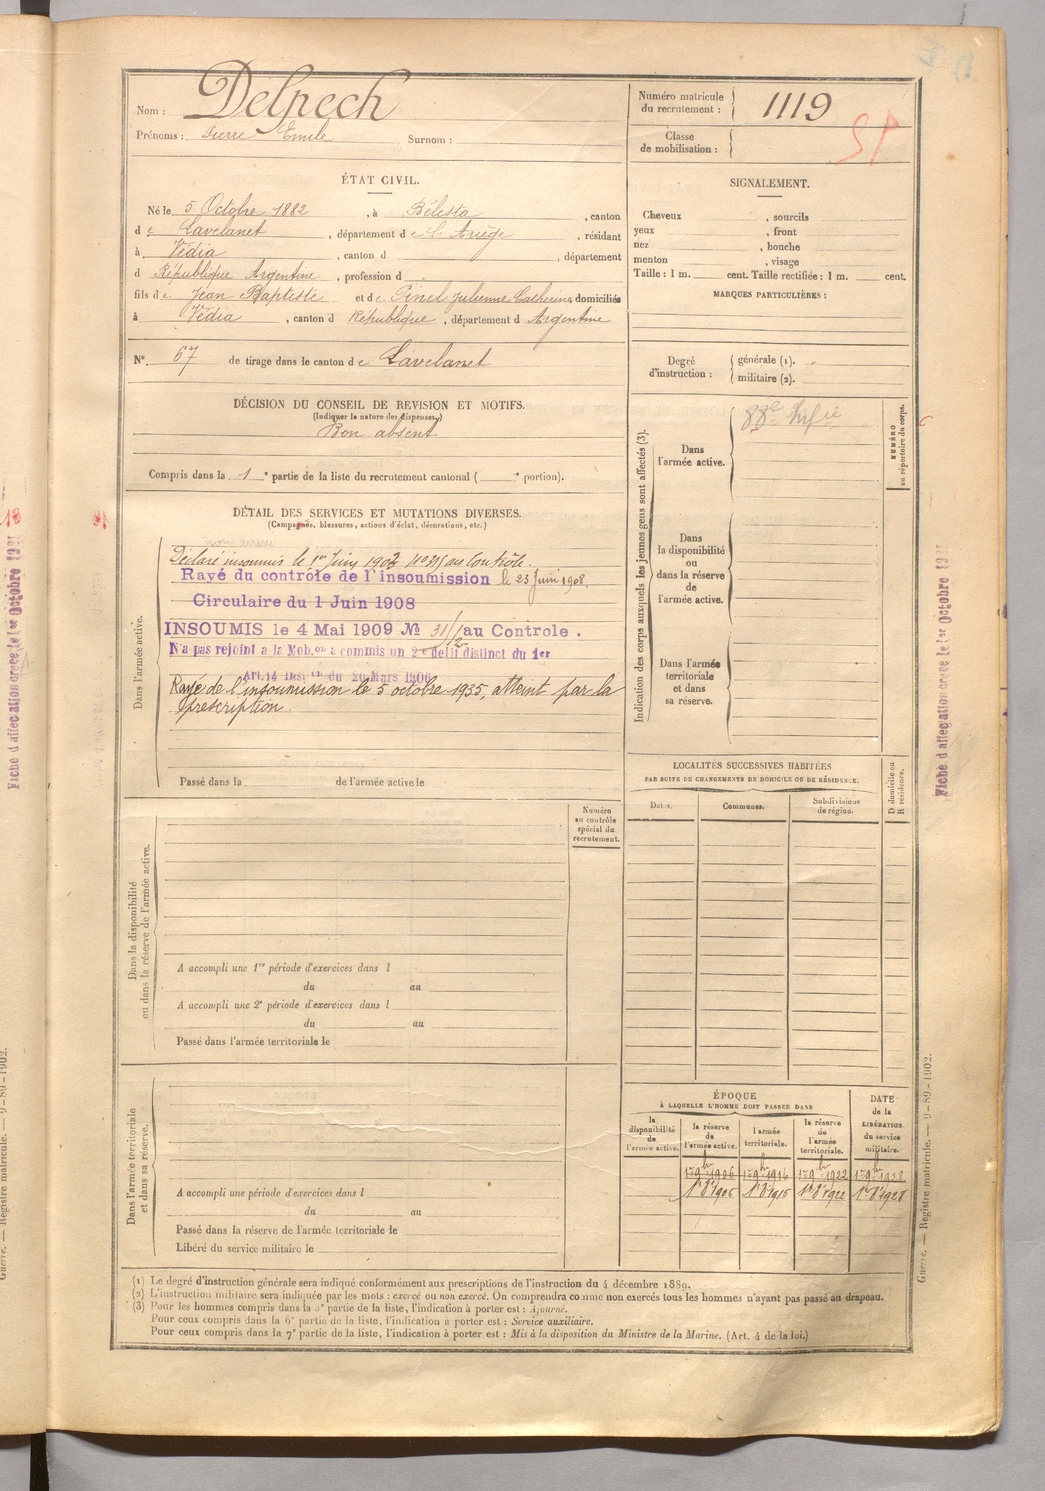 Nom : Delpech
Prénoms : Pierre Emile Surnom :
Numéro matricule du recrutement : 1119
Classe de mobilisation :
SP
ÉTAT CIVIL.
Né le 5 Octobre 1882, à Bélesta, canton
de Lavelanet, département de l'Ariège, résidant
à Védia, canton d , département
d République Argentine, profession d
fils de Jean Baptiste et de Pinel Julienne Catherine, domiciliés
à Védia, canton d République, département d Argentine
N° 67 de tirage dans le canton de Lavelanet
DÉCISION DU CONSEIL DE REVISION ET MOTIFS.
(Indiquer la nature des dispenses.)
Bon absent
Compris dans la 1re partie de la liste du recrutement cantonal ( e portion).
SIGNALEMENT.
Cheveux , sourcils
yeux , front
nez , bouche
menton , visage
Taille : 1 m. cent. Taille rectifiée : 1 m. cent.
MARQUES PARTICULIÈRES :
Degré d'instruction :
générale (1).
militaire (2).
DÉTAIL DES SERVICES ET MUTATIONS DIVERSES.
(Campagnes, blessures, actions d'éclat, décorations, etc.)
Dans l'armée active.
non arrivé
Déclaré insoumis le 1er Juin 1903 N° 315 au Contrôle.
Rayé du contrôle de l'insoumission le 23 Juin 1908.
Circulaire du 1 Juin 1908
INSOUMIS le 4 Mai 1909 № 31/2 au Controle.
N'a pas rejoint a la Mob.on a commis un 2e delit distinct du 1er
Art. 14 Inst.on du 20 Mars 1906
Rayé de l'insoumission le 5 octobre 1935, atteint par la
prescription.
Passé dans la de l'armée active le
Indication des corps auxquels les jeunes gens sont affectés (3).
Dans l'armée active.
88e Inf ie
NUMÉRO au répertoire du corps.
Dans la disponibilité ou dans la réserve de l'armée active.
Dans l'armée territoriale et dans sa réserve.
LOCALITÉS SUCCESSIVES HABITÉES
PAR SUITE DE CHANGEMENTS DE DOMICILE OU DE RÉSIDENCE.
Dates. Communes. Subdivisions de région. D domicile ou R résidence.
Dans la disponibilité ou dans la réserve de l'armée active.
Numéro au contrôle spécial du recrutement.
A accompli une 1re période d'exercices dans l
du au
A accompli une 2e période d'exercices dans l
du au
Passé dans l'armée territoriale le
Dans l'armée territoriale et dans sa réserve.
A accompli une période d'exercices dans l
du au
Passé dans la réserve de l'armée territoriale le
Libéré du service militaire le
ÉPOQUE
À LAQUELLE L'HOMME DOIT PASSER DANS
la disponibilité de l'armée active.
la réserve de l'armée active.
l'armée territoriale.
la réserve de l'armée territoriale.
DATE de la LIBÉRATION du service militaire.
1er 9bre 1906 1er 9bre 1916 1er 9bre 1922 1er 9bre 1928
1er 8bre 1906 1er 8bre 1916 1er 8bre 1922 1er 8bre 1928
(1) Le degré d'instruction générale sera indiqué conformément aux prescriptions de l'instruction du 4 décembre 1889.
(2) L'instruction militaire sera indiquée par les mots : exercé ou non exercé. On comprendra comme non exercés tous les hommes n'ayant pas passé au drapeau.
(3) Pour les hommes compris dans la 5e partie de la liste, l'indication à porter est : Ajourné.
Pour ceux compris dans la 6e partie de la liste, l'indication à porter est : Service auxiliaire.
Pour ceux compris dans la 7e partie de la liste, l'indication à porter est : Mis à la disposition du Ministre de la Marine. (Art. 4 de la loi.)
Guerre. — Registre matricule. — 9-89-1902.
Fiche d'affectation créée le 1er Octobre 1921
Fiche d'affectation créée le 1er Octobre 1921
Guerre. — Registre matricule. — 9-89-1902.